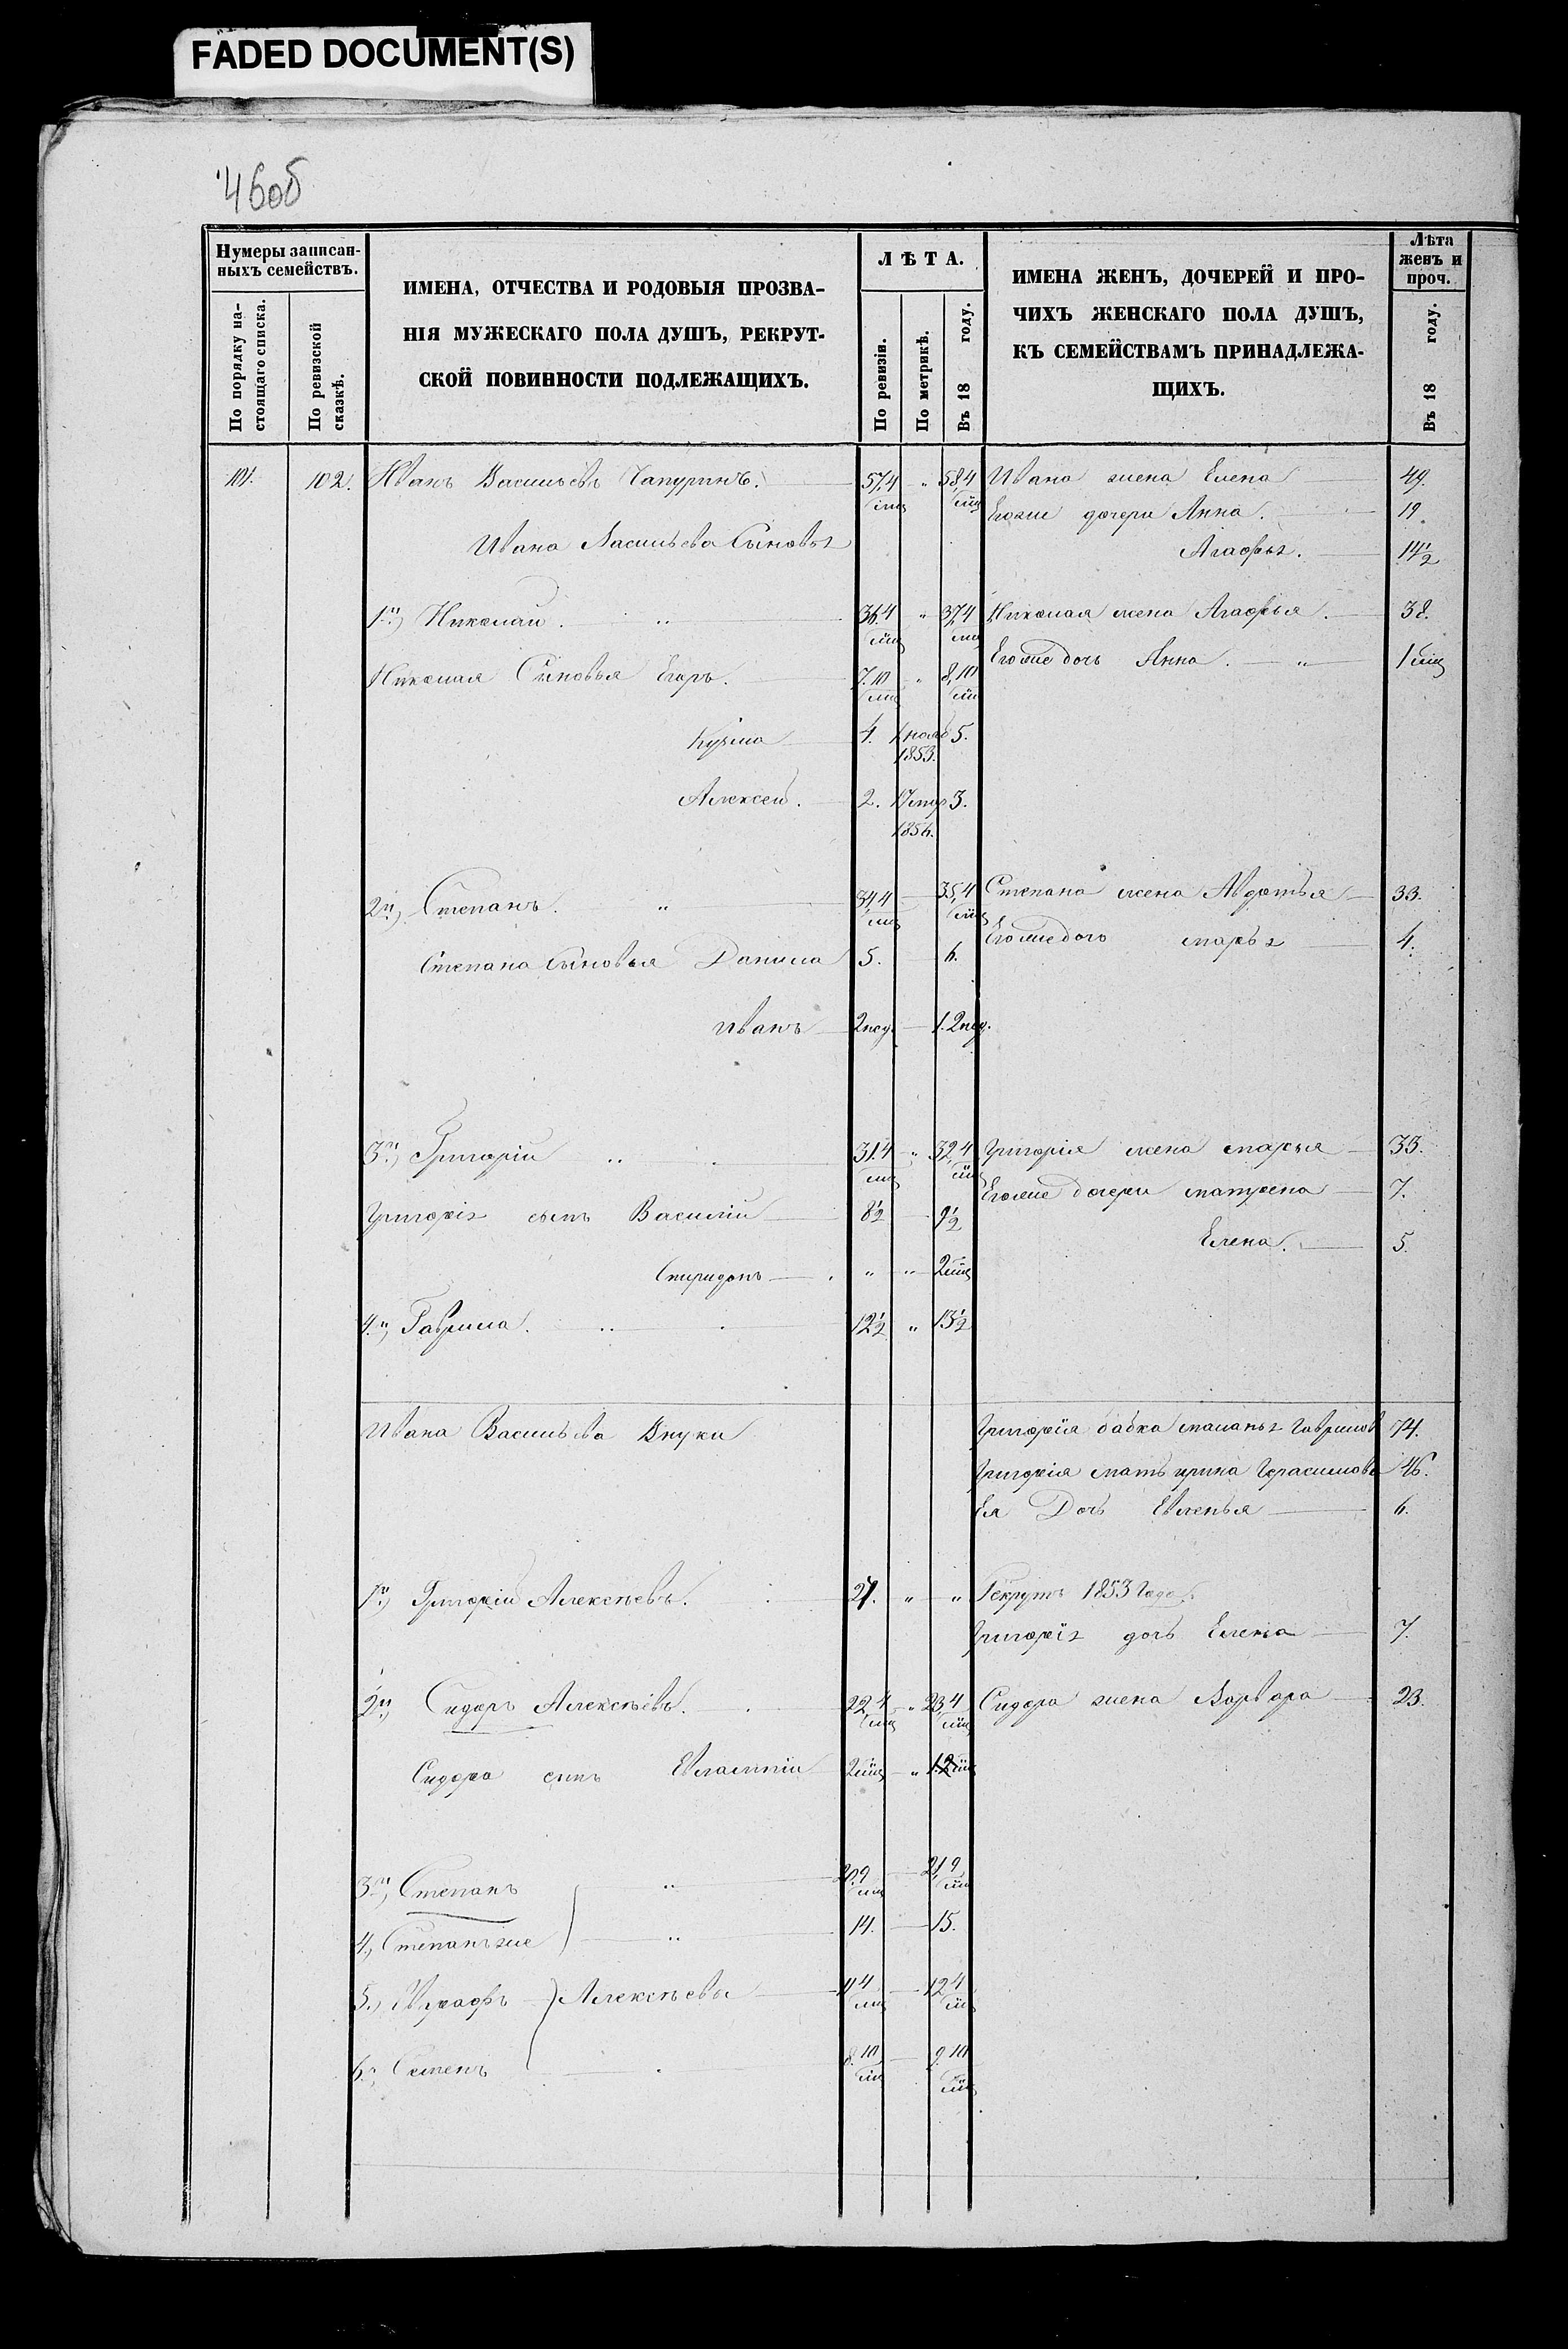 FADED DOCUMENT(S)
46об
Нумеры записан-
ныхъ семействъ.
По порядку на-
стоящаго списка.
По ревизской
сказкѣ.
ИМЕНА, ОТЧЕСТВА И РОДОВЫЯ ПРОЗВА-
НІЯ МУЖЕСКАГО ПОЛА ДУШЪ, РЕКРУТ-
СКОЙ ПОВИННОСТИ ПОДЛЕЖАЩИХЪ.
ЛѢТА.
По ревизіи.
По метрикѣ.
Въ 18 году.
ИМЕНА ЖЕНЪ, ДОЧЕРЕЙ И ПРО-
ЧИХЪ ЖЕНСКАГО ПОЛА ДУШЪ,
КЪ СЕМЕЙСТВАМЪ ПРИНАДЛЕЖА-
ЩИХЪ.
Лѣта
женъ и
проч.
Въ 18 году.
101. 102. Иванъ Васильевъ Чапуринъ. 57,4 мѣс „ 58,4 мѣс Ивана жена Елена 49.
Егоже дочери Анна. 19
Ивана Васильева Сыновья
Агафья. 14 1/2
1й, Николай. „ 36,4 мѣс „ 37,4 мѣс Николая жена Агафья. 38.
Егоже дочь Анна. „ 1 мѣс
Николая Сыновья Егоръ. 7,10 мѣс „ 8,10 мѣс
Кузма 4. 1853. 5.
Алексей. 2. 3.
2й, Степанъ. „ 34,4 мѣс 35,4 мѣс Степана жена Авдотья 33.
Егоже дочь марья 4.
Степана сыновья Данила 5. 6.
Иванъ 2 нед. 1. 2 нед.
3й, Григорій „ 31,4 мѣс „ 32,4 мѣс Григорія жена марья 33.
Егоже дочери матрена 7.
Григорія сынъ Василій 8 1/2 9 1/2
Елена. 5.
Спиридонъ „ „ 2 мѣс
4й, Гаврила. „ 12 1/2 „ 13 1/2
Ивана Васильева Внуки
Григорія бабка маланья Гаврилов 74.
Григорія мать ирина Герасимова 46.
Ея Дочь Евленья 6.
1й, Григорій Алексѣевъ. 27. „ „ Рекрутъ 1853 Года.
Григорія дочь Елена 7.
2й, Сидоръ Алексѣевъ. 22,4 мѣс „ 23,4 мѣс Сидора жена Варвара 23.
Сидора сынъ Евлампій 2 мѣс „ 1.2 мѣс
3й, Степанъ „ 20,9 мѣс 21,9 мѣс
4, Степанъ же „ 14. 15.
5, Евграфъ Алексѣевы 11,4 мѣс 12,4 мѣс
6, Семенъ 8,10 мѣс 9,10 мѣс